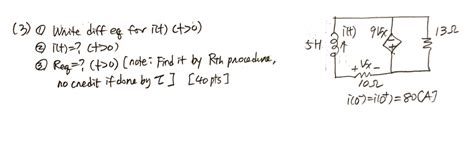 (3) ① Write diff eq for i(t) (t>0)
② i(t)=? (t>0)
③ Req=? (t>0) [note: Find it by Rth procedure,
no credit if done by τ] [40 pts]
5H i(t) 9Vx 13Ω
+ Vx -
10Ω
i(0⁻)=i(0⁺)=80[A]